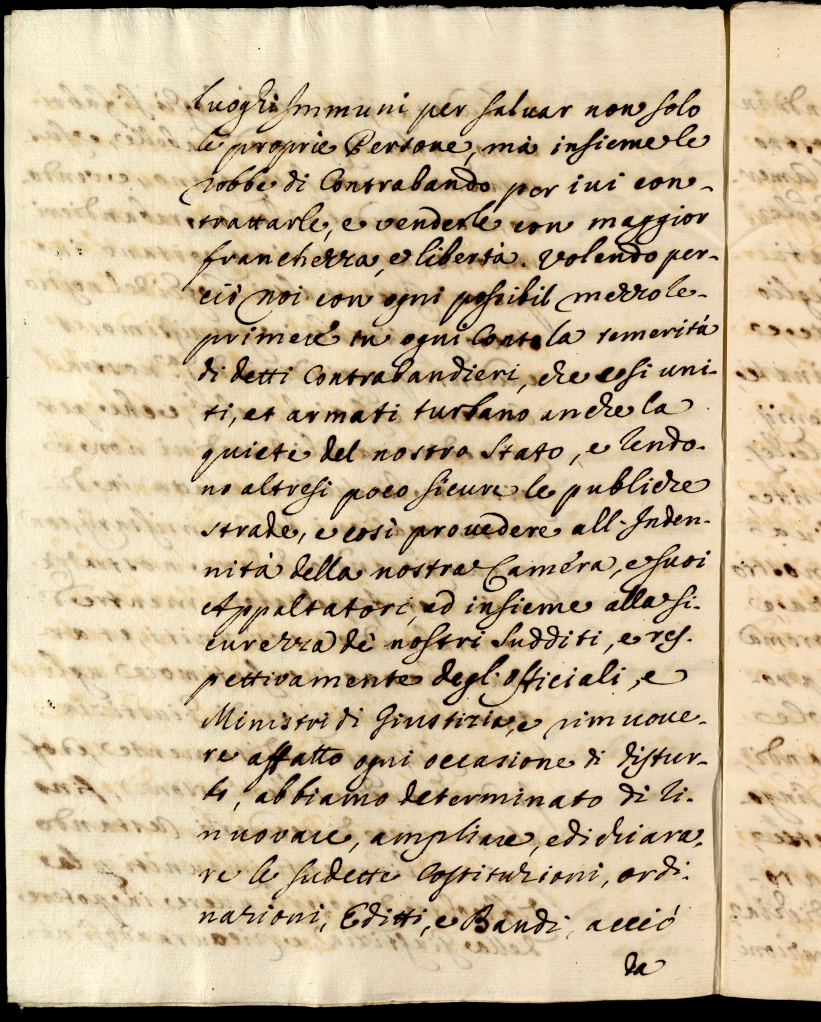 luoghi Immuni per saluar non solo
le proprie Persone, mà insieme le
robbe di Contrabando per iui con-
trattarle, e venderle con maggior
franchezza, e libertà. Volendo per-
ciò noi con ogni possibil mezzo re-
primere in ogni Conto la temerità
di detti Contrabandieri, che così uni-
ti, et armati turbano anche la
quiete del nostro Stato, e rendo-
no altresi poco sicure le publiche
strade, e così prouedere all'Inden-
nità della nostra Camera, e suoi
Appaltatori, ed insieme alla si-
curezza dè nostri sudditi, e res-
pettivamente degl'officiali, e
Ministri di Giustizia, e rimuoue-
re affatto ogni occasione di distur-
bi, abbiamo determinato di ri-
nuovare, ampliare, e dichiara-
re le sudette Costituzioni, ordi-
nazioni, Editti, e Bandi, acciò
da